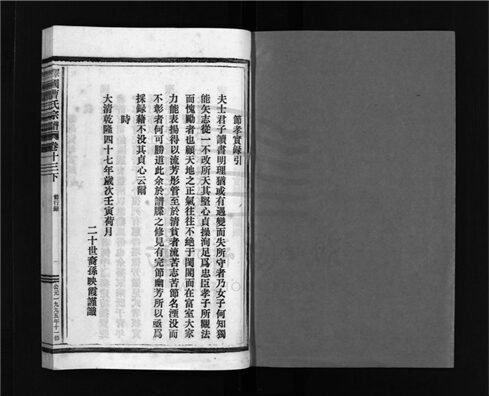 節孝實錄引
夫士君子讀書明理猶或有遇變而失所守者乃女子何知獨
能矢志從一不改所天其堅心貞操洵足爲忠臣孝子所觀法
而愧勵者也顧天地之正氣往往不絶于閨閫而在富室大家
力能表揚得以流芳彤管至於清貧者流苦志苦節名湮没而
不彰者何可勝道此余於譜牒之修見有完節幽芳所以亟爲
採録藉不没其貞心云爾
時
大清乾隆四十七年歲次壬寅荷月
二十世裔孫映霞謹識
氏宗譜
卷十三下
公元一九九五年十一修